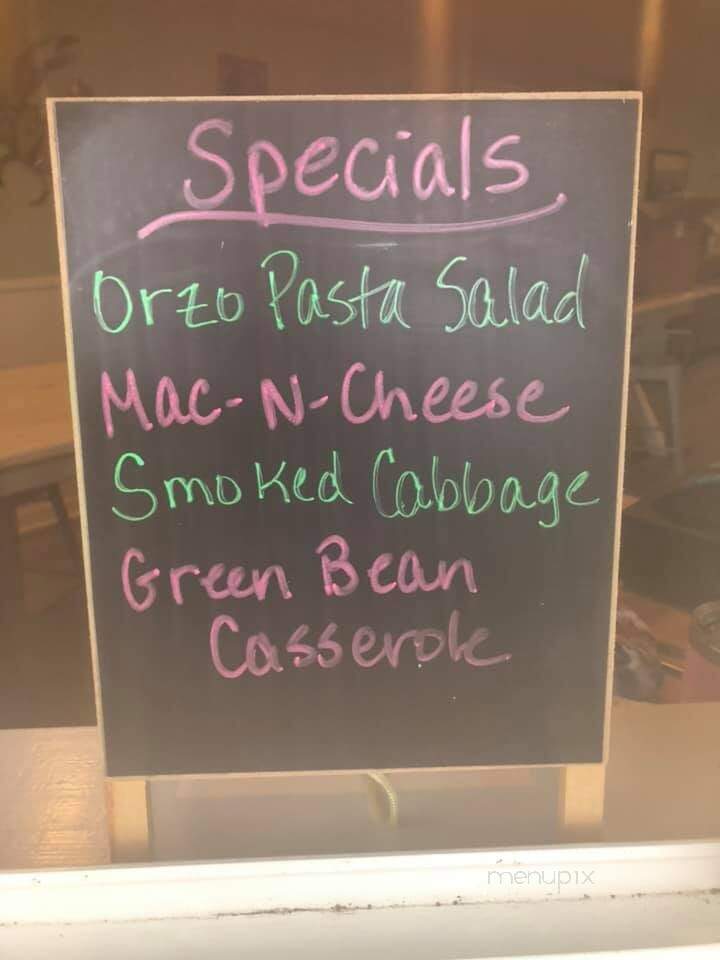 Specials
Orzo Pasta Salad
Mac-N-Cheese
Smoked Cabbage
Green Bean
Casserole
menupix